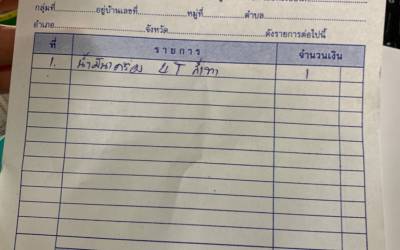 กลุ่มที่....................อยู่บ้านเลขที่....................หมู่ที่....................ตำบล
อำเภอ....................จังหวัด....................ดังรายการต่อไปนี้
ที่ รายการ จำนวนเงิน
1. น้ำมันเครื่อง 4T 1